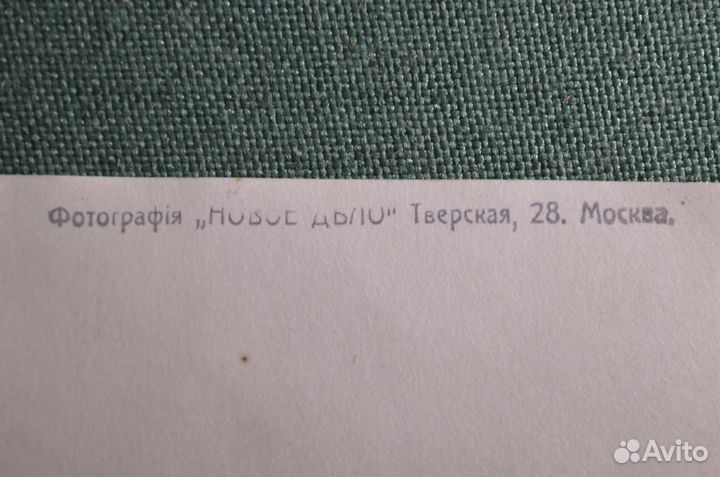 Фотографія „НОВОЕ ДѢЛО" Тверская, 28. Москва.
Avito